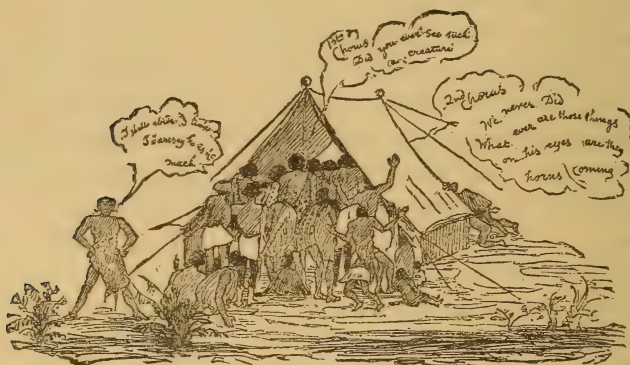 I shall
I daresay he
much
1st
Chorus
Did you ever see such
a creature
2nd Chorus
We never Did
What ever are those things
on his eyes are they
horns coming